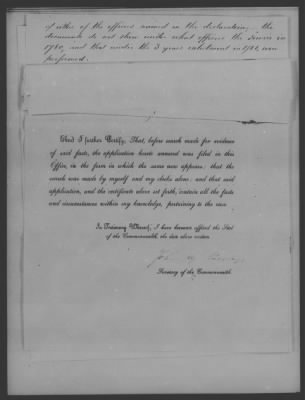 of either of the officers named in the declaration, – the
documents do not show under what officers the service in
1780, and that under the 3 years enlistment in 1781, were
performed.
And I further Certify, That, before search made for evidence
of said facts, the application hereto annexed was filed in this
Office, in the form in which the same now appears; that the
search was made by myself and my clerks alone; and that said
application, and the certificate above set forth, contain all the facts
and circumstances within my knowledge, pertaining to the case.
In Testimony Whereof, I have hereunto affixed the Seal
of the Commonwealth, the date above written.
John
Secretary of the Commonwealth.